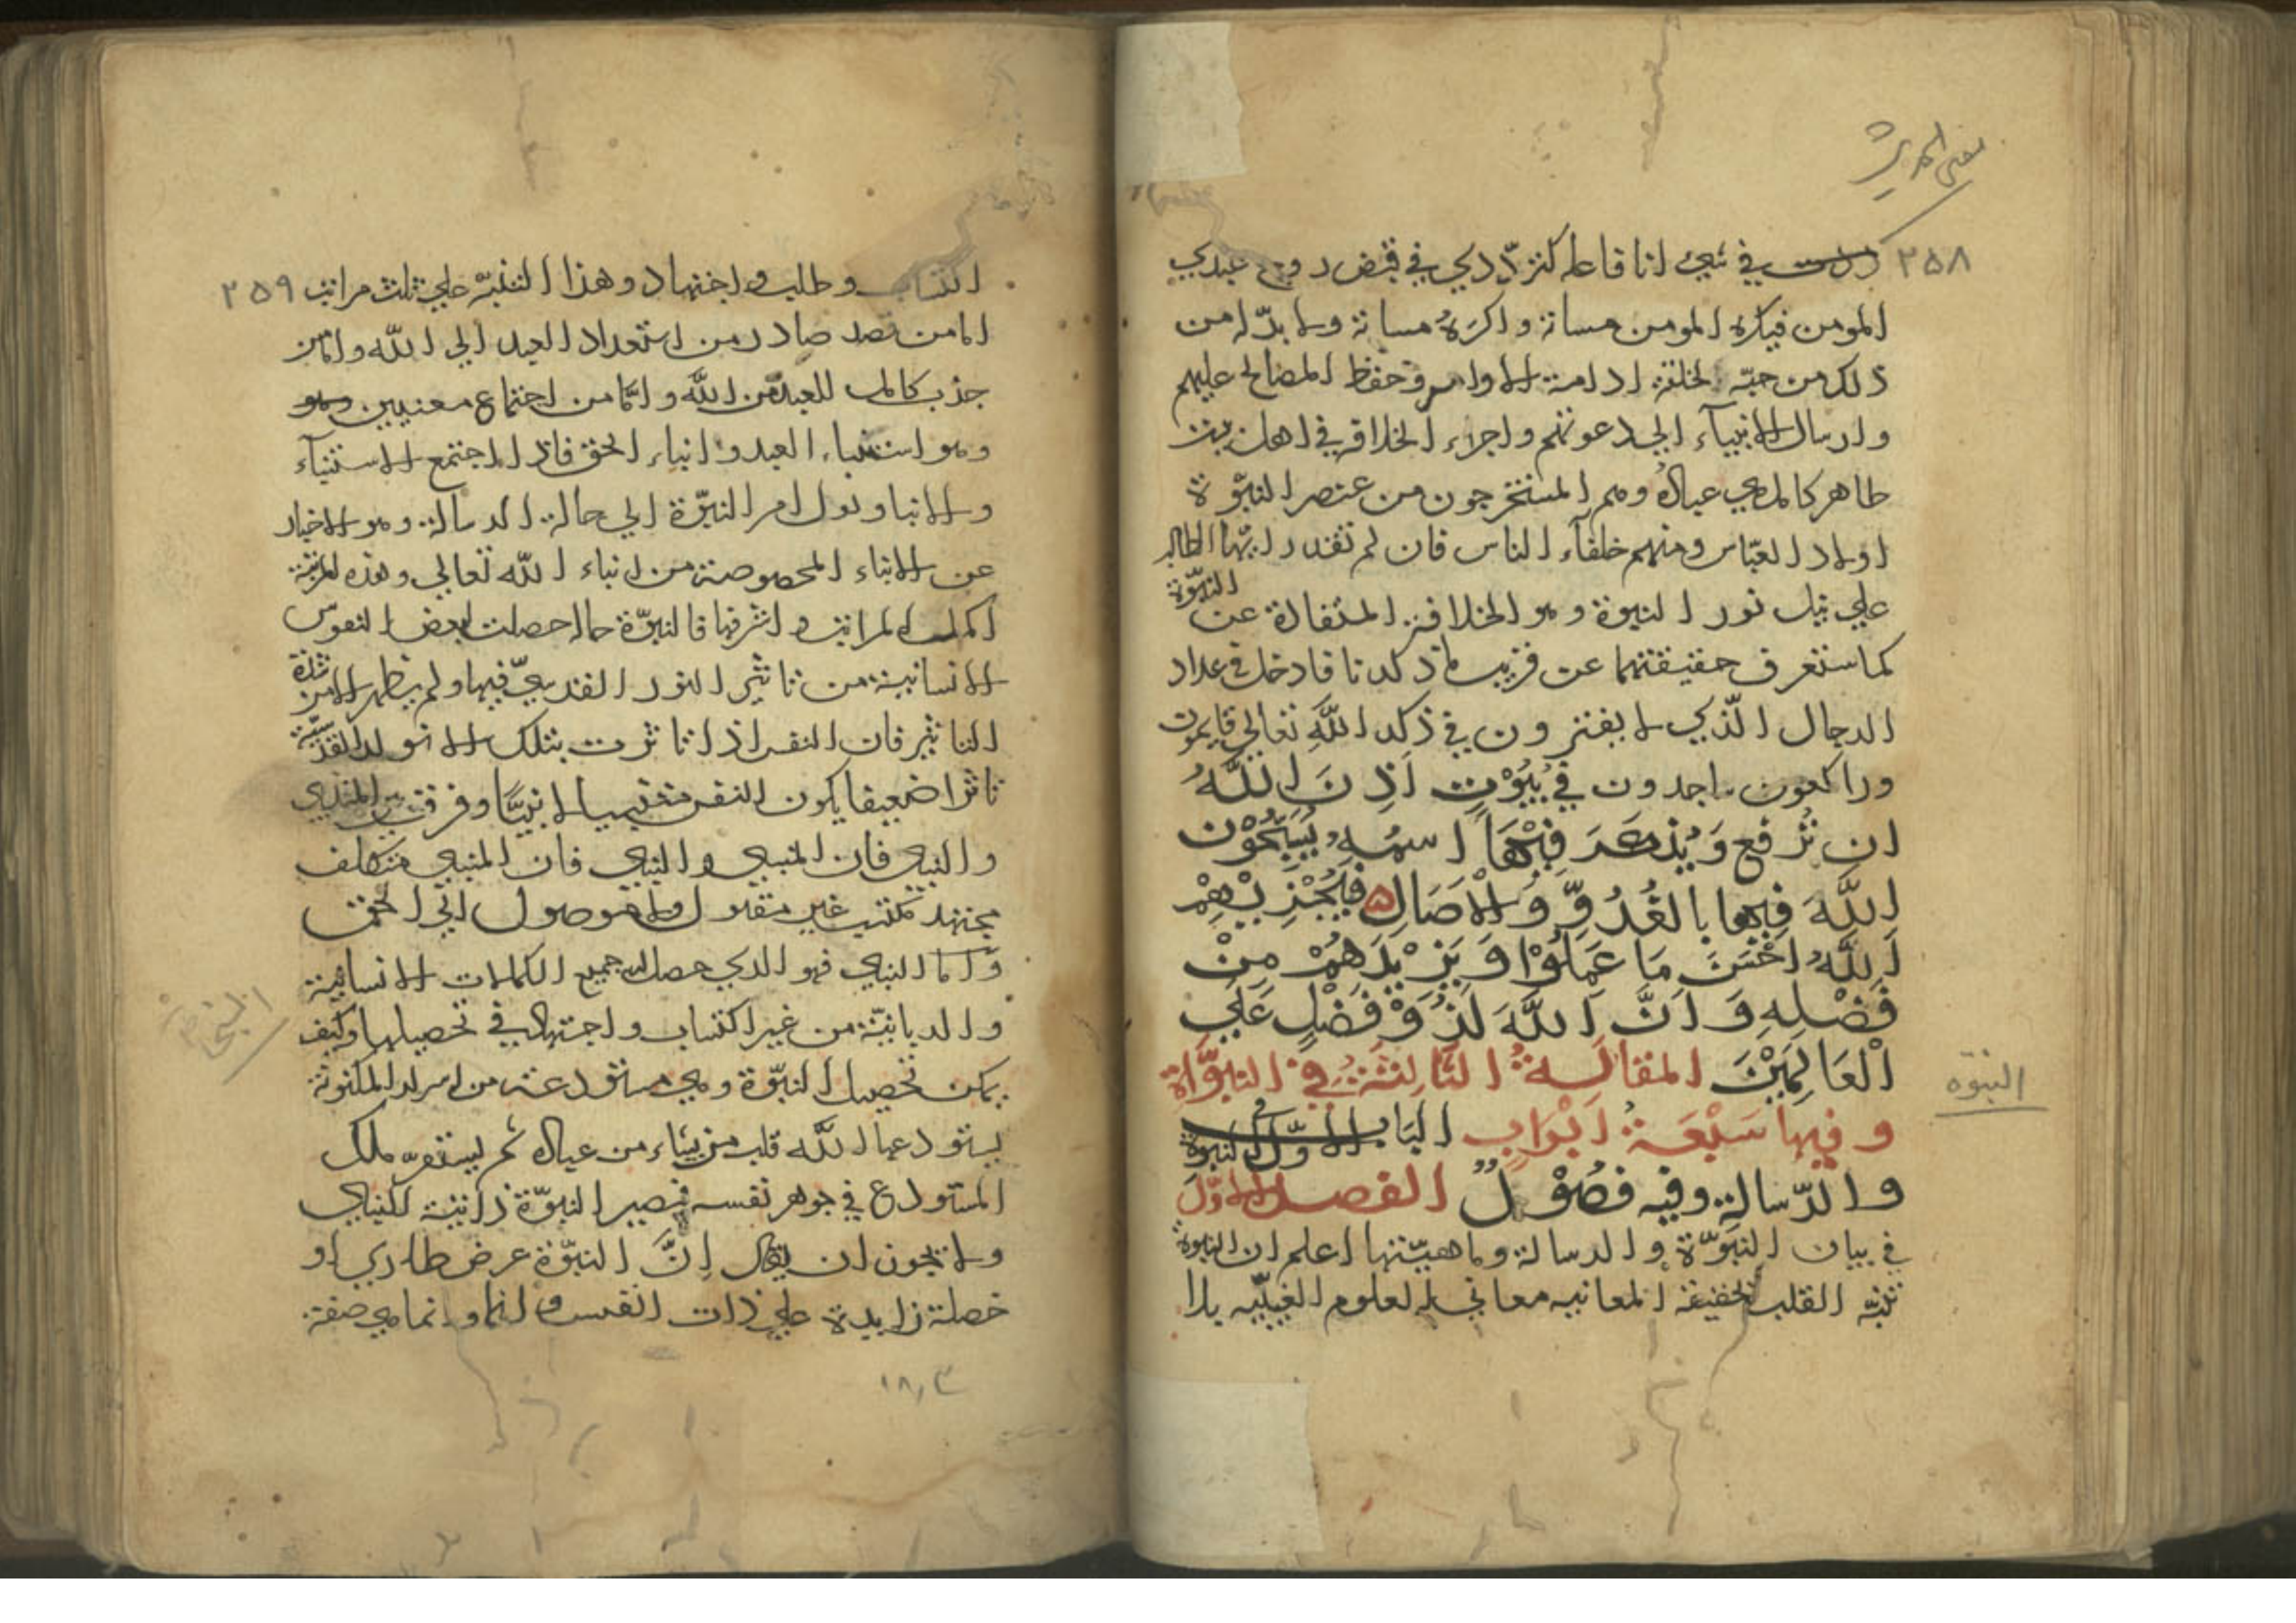 معنى الحديث
٢٥٨
في شيء انا فاعله كترددي في قبض روح عبدي
المومن فيكره المومن مساتة واكره مساتة ولا بد له من
ذلك من حبه لخلقه ادامة الاوامر وحفظ المصالح عليهم
وارسال الانبياء الي دعوتهم واجراء الخلافة في اهل بيت
طاهر كامل هي عباده وهم المستخرجون من عنصر النبوة
اولاد العباس ومنهم خلفاء الناس فان لم تقدر ايها الطالب
علي نيل نور النبوة وهو الخلافة المنقادة عن النبوة
كما ستعرف حقيقتهما عن قريب فادخل في عداد
الرجال الذي لا يفترون في ذكر الله تعالي قايمون
وراكعون ساجدون في بُيُوْتٍ اَذِنَ اللَّهُ
ان تُرْفع وَيُذكَرَ فِيْهَا اسمُهُ يُسَبِّحُوْن
اللَّهَ فِيْها بالغُدُوِّ وَالاَصَالِ فَيُجْزِيْهِمْ
اَللَّهُ احْسَنَ مَا عَمِلُوْا وَيَزِيْدَهِمْ مِنْ
فَضْلِهِ وَاَنَّ اَللَّهَ لَذُوْ فَضْلٍ عَلَي
الْعَالَمِيْنَ المقالةُ الثَّالِثَةُ فِي النبوَّاة
النبوّه
وفيها سَبْعَةُ ابْوَابٍ البَاب الاوّل في النبوة
والرّسالة وفيه فُصُوْلٌ الفصل الاوّل
في بيان النبوّة والرسالة وماهيّتها اعلم ان النبوة
تنبّه القلب لحقيقة المعانيه معاني العلوم الغيبيّه بلا
٢٥٩
اكتساب وطلب واجتهاد وهذا التنبّه علي ثلث مراتب
اما من قصد صادر من استعداد العبد الي اللّه واما من
جذب كامل للعبد من اللّه واما من اجتماع معنيين
وهو استنباء العبد وانباء الحق فاذا اجتمع الاستنباء
والانبا ونول امر النبوّة الي حالة الرسالة وهو الاخبار
عن الانباء المخصوصة من انباء اللّه تعالي وهذه المرتبة
اكمل المراتب واشرفها فالنبوّة حالة حصلت لبعض النفوس
الانسانية من تاثير النور القدسيّ فيها ولم يظهر الا من شدة
التاثير فان النفس اذا تاثرت بتلك الانوار القدسيّة
تاثرا ضعيفا يكون النفس متنبيا لا نبيّا وفرق بين المتنبي
والنبي فان المتنبي والنبي فان المتنبي متكلف
مجتهد مكتسب غير مقبول ولا موصول الي الحق
وَاَمّا النبي فهو الذي حصل له جميع الكمالات الانسانية
النبي
والربانيّة من غير اكتساب واجتهاد في تحصيلها وكيف
يمكن تحصيل النبوّة وهي مستودعة من اسرار المكنونة
يستودعها اللَّه قلب من يشاء من عباده ثم يستقر ملك
المستودع في جوهر نفسه فيصير النبوّة ذاتية للنبي
ولا يجوز ان يقال اِنَّ النبوّة عرض طاري او
خصلة زايدة علي ذات النفس وانما هي صفة